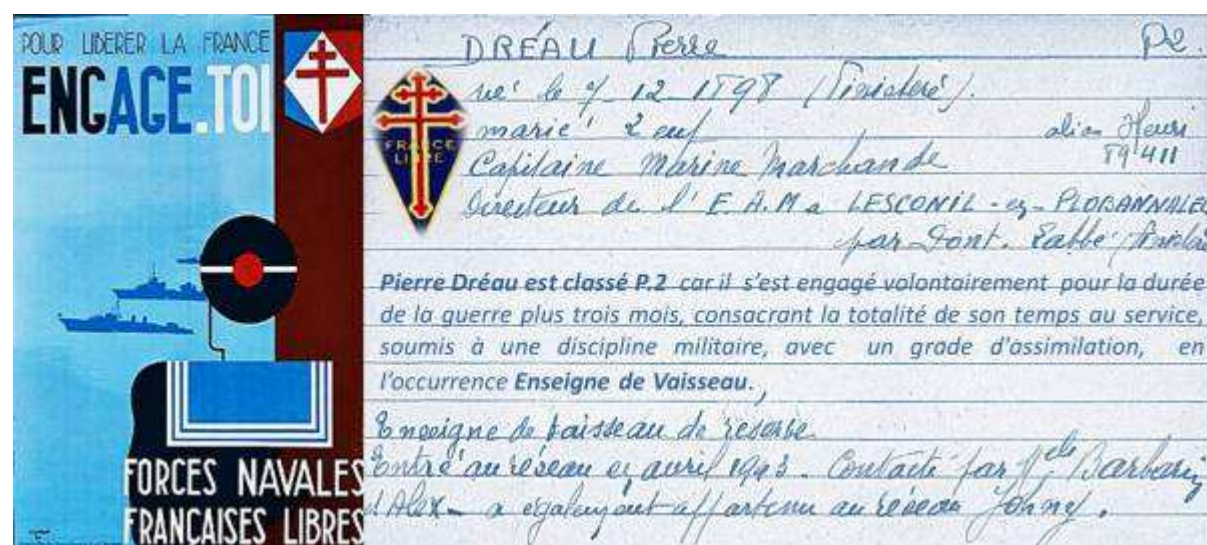 POUR LIBERER LA FRANCE
ENGAGE.TOI
FORCES NAVALES
FRANÇAISES LIBRES
FRANCE
LIBRE
DRÉAU Pierre P2.
né le 7_12_1898 (Finistère).
marié 2 enf alias Henri
89411
Capitaine Marine Marchande
Directeur de l'E.A.M a LESCONIL - en - PLOBANNALEC
par Pont. Labbé
Pierre Dréau est classé P.2 car il s'est engagé volontairement pour la durée
de la guerre plus trois mois, consacrant la totalité de son temps au service,
soumis à une discipline militaire, avec un grade d'assimilation, en
l'occurrence Enseigne de Vaisseau.
Enseigne de vaisseau de réserve.
Entré au réseau en avril 1943. Contacté par Mlle Barbarin
d'Alex _ a également appartenu au réseau Johny.